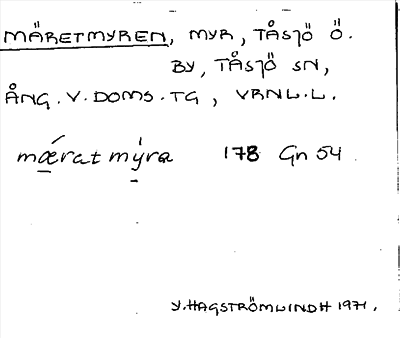 MÄRETMYREN, MYR, TÅSJÖ Ö.
BY, TÅSJÖ SN,
ÅNG. V. DOMS. TG, VRNL. L.
mǽrat mýra 178 Gn 54
Y. HAGSTRÖMLINDH 1971.